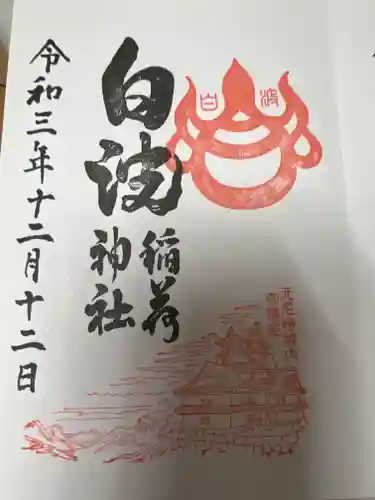 白波
稲荷
神社
令和三年十二月十二日
白波